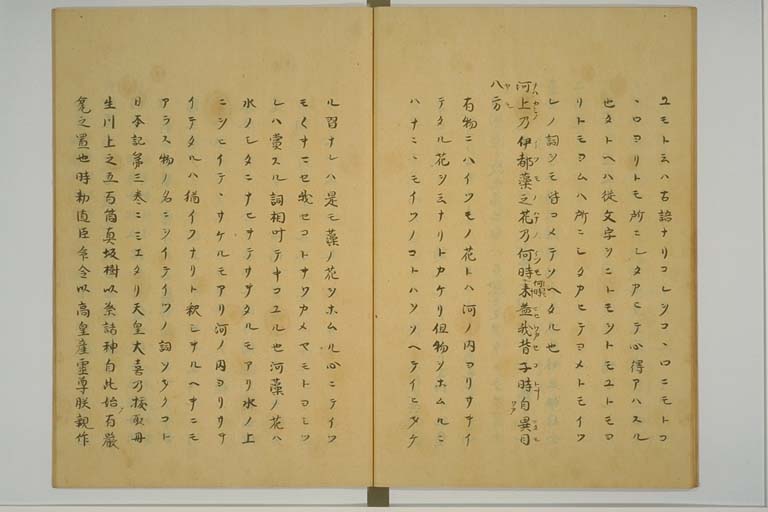 ユモトミハ古語ナリコレシコヽロニモトコ
ヽロヨリトモ所ニシタアヒテ心得アハスル
也タトヘハ從文字シニトモシトモユトモヨ
リトモヨムハ所ニシタアヒテヨメトモイツ
レノ詞シモ皆コメテシヘタル也
河上乃伊都藻之花乃何時〻〻来益我背子時自異目
八方
右物ニハイツモノ花トハ河ノ内ヨリサナイ
テタル花シミナリトカケリ但物シホムルニ
ハナニヽモイツノコトハソソヘテイヒタケ
ル習ナレハ是モ藻ノ花シホムル心ニテイツ
モくサニセ我セコトサワカメヤモトヨミツ
レハ賞スル詞相叶テキコユル也河藻ノ花ハ
水ノシタニナヒサテサタルモアリ水ノ上
ニシヒイテヽサケルモアリ河ノ内ヨリササ
イテタルハ猶イフナリト釈シサルヘキニモ
アラス物ノ名ニシイテイツノ詞ソタクコト
日本記第三巻ニミエタリ天皇大喜乃抜取丹
生川上之五百箇真坂樹以祭諸神自此始有厳
瓮之置也時勅道臣命今以高皇産霊尊朕親作